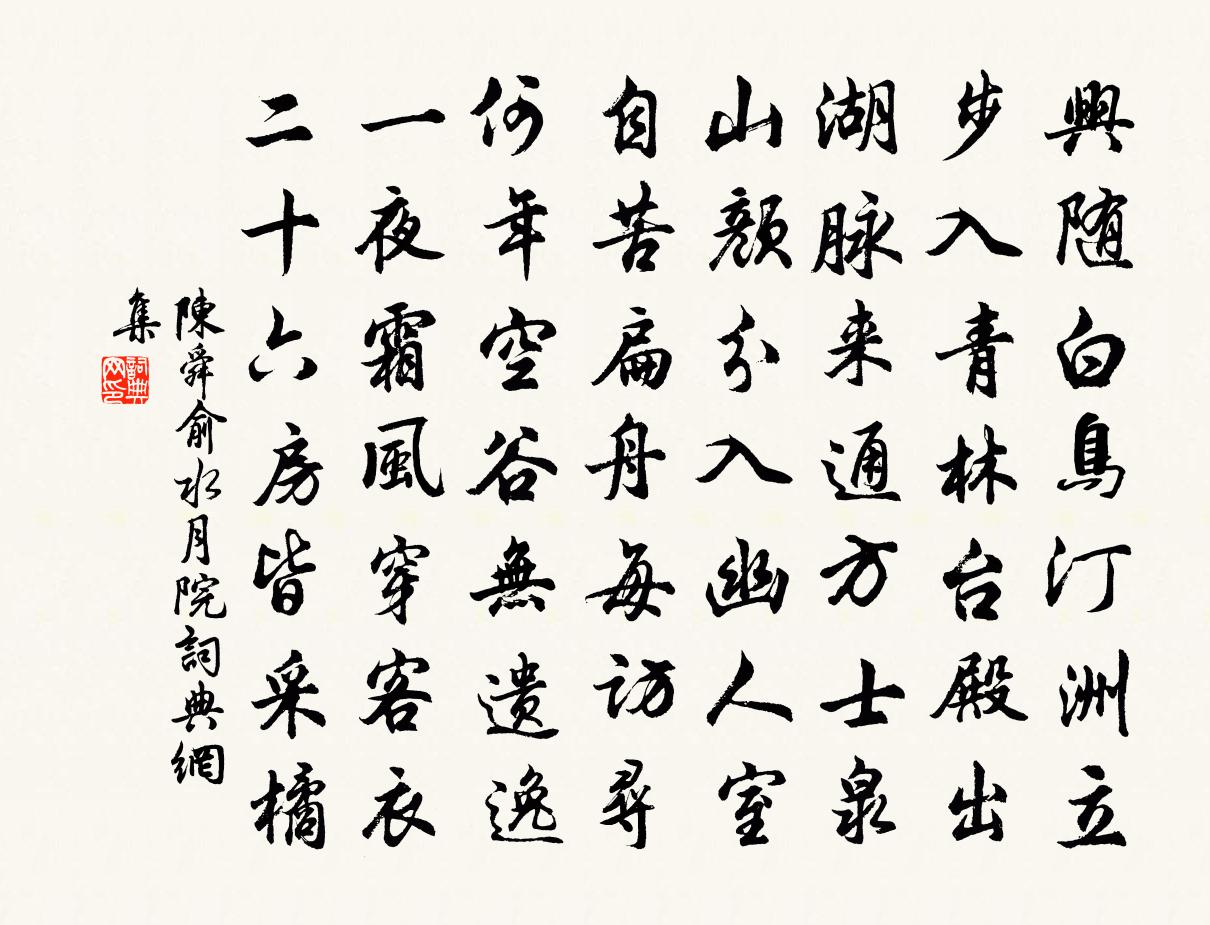 興随白鳥汀洲立
步入青林台殿出
湖脉来通方士泉
山顔分入幽人室
自苦扁舟每访尋
何年空谷無遗逸
一夜霜風穿客衣
二十六房皆采橘
陳舜俞水月院詞典網
集
詞典
网印